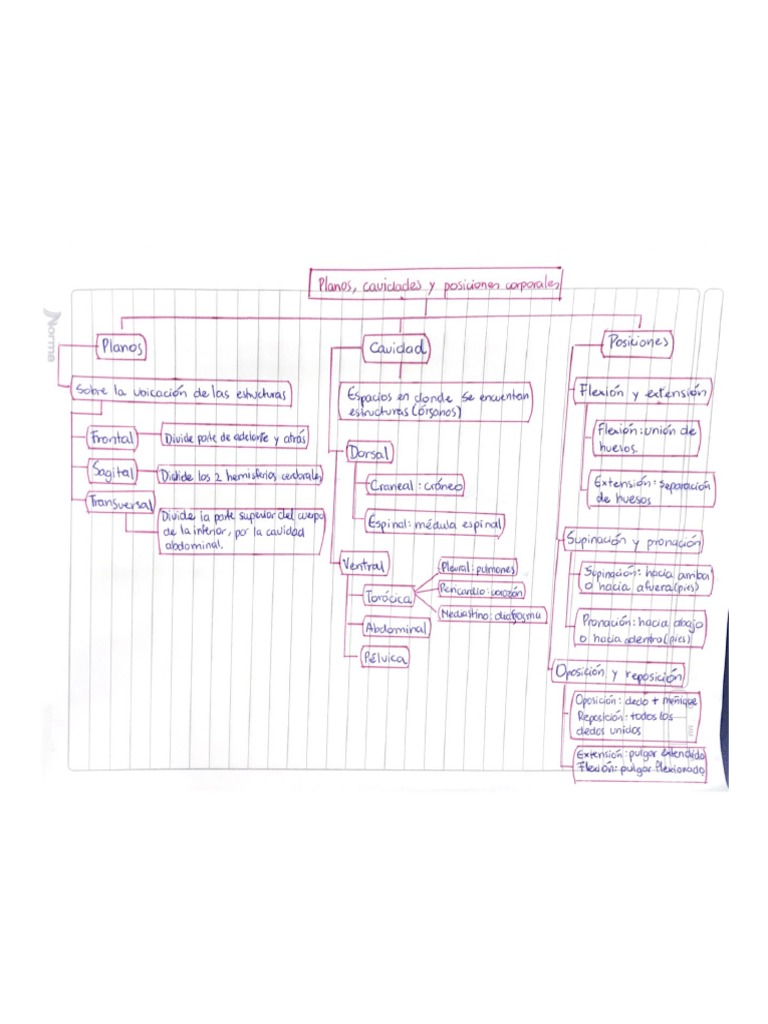 Planos, cavidades y posiciones corporales
Norma
Planos
Sobre la ubicación de las estructuras
Frontal
Divide parte de adelante y atrás
Sagital
Divide los 2 hemisferios cerebrales
Transversal
Divide la parte superior del cuerpo
de la inferior, por la cavidad
abdominal.
Cavidad
Espacios en donde se encuentan
estructuras (órganos)
Dorsal
Craneal: cráneo
Espinal: médula espinal
Ventral
Torácica
Pleural: pulmones
Pericardio: corazón
Mediastino: diafragma
Abdominal
Pélvica
Posiciones
Flexión y extensión
Flexión: unión de
huesos.
Extensión: separación
de huesos
Supinación y pronación
Supinación: hacia arriba
o hacia afuera (pies)
Pronación: hacia abajo
o hacia adentro (pies)
Oposición y reposición
Oposición: dedo + meñique
Reposición: todos los
dedos unidos
Extensión: pulgar extendido
Flexión: pulgar flexionado